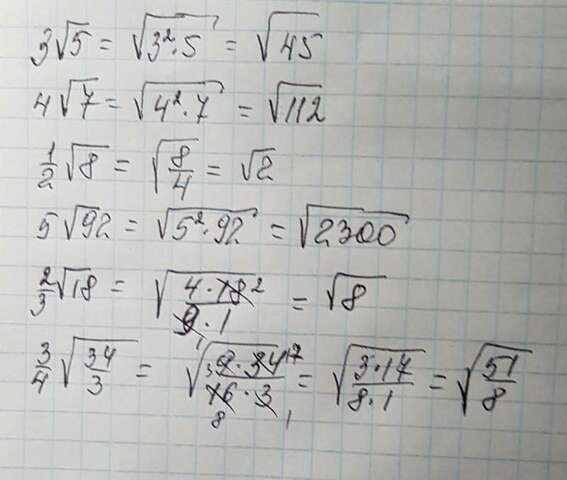 3√5 = √(3²·5) = √45
4√7 = √(4²·7) = √112
1/2 √8 = √(8/4) = √2
5√92 = √(5²·92) = √2300
2/3 √18 = √((4·18 2)/(9·1 1)) = √8
3/4 √(34/3) = √((3 9·34 17)/(16·3 8 1)) = √((3·17)/(8·1)) = √(51/8)